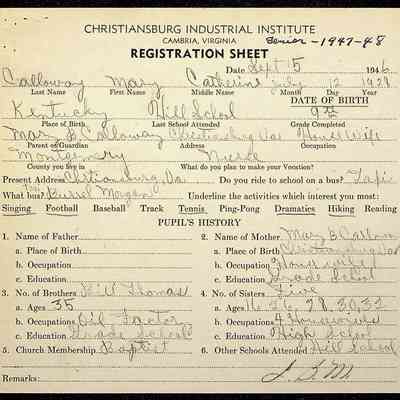 CHRISTIANSBURG INDUSTRIAL INSTITUTE
CAMBRIA, VIRGINIA
Senior - 1947-48
REGISTRATION SHEET
Date Sept 15 1946
Calloway Mary Catherine July 12 1929
Last Name First Name Middle Name DATE OF BIRTH
Kentucky Hill School 9th
Place of Birth Last School Attended Grade Completed
Mary B Calloway Christiansburg Va House Wife
Parent or Guardian Address Occupation
Montgomery Nurse
County you live in What do you plan to make your Vocation?
Present Address Christiansburg, Va Do you ride to school on a bus? Taxi
What bus? Burrel Morgan Underline the activities which interest you most:
Singing Football Baseball Track Tennis Ping-Pong Dramatics Hiking Reading
PUPIL'S HISTORY
1. Name of Father
2. Name of Mother Mary B Calloway
a. Place of Birth
a. Place of Birth Christiansburg Va
b. Occupation
b. Occupation House wife
c. Education
c. Education Grade School
3. No. of Brothers Will Thomas
4. No. of Sisters Five
a. Ages 35
a. Ages 28, 30, 32
b. Occupations
b. Occupations 4 Housewives
c. Education Grade School
c. Education High School
5. Church Membership Baptist
6. Other Schools Attended Hill School
Remarks: